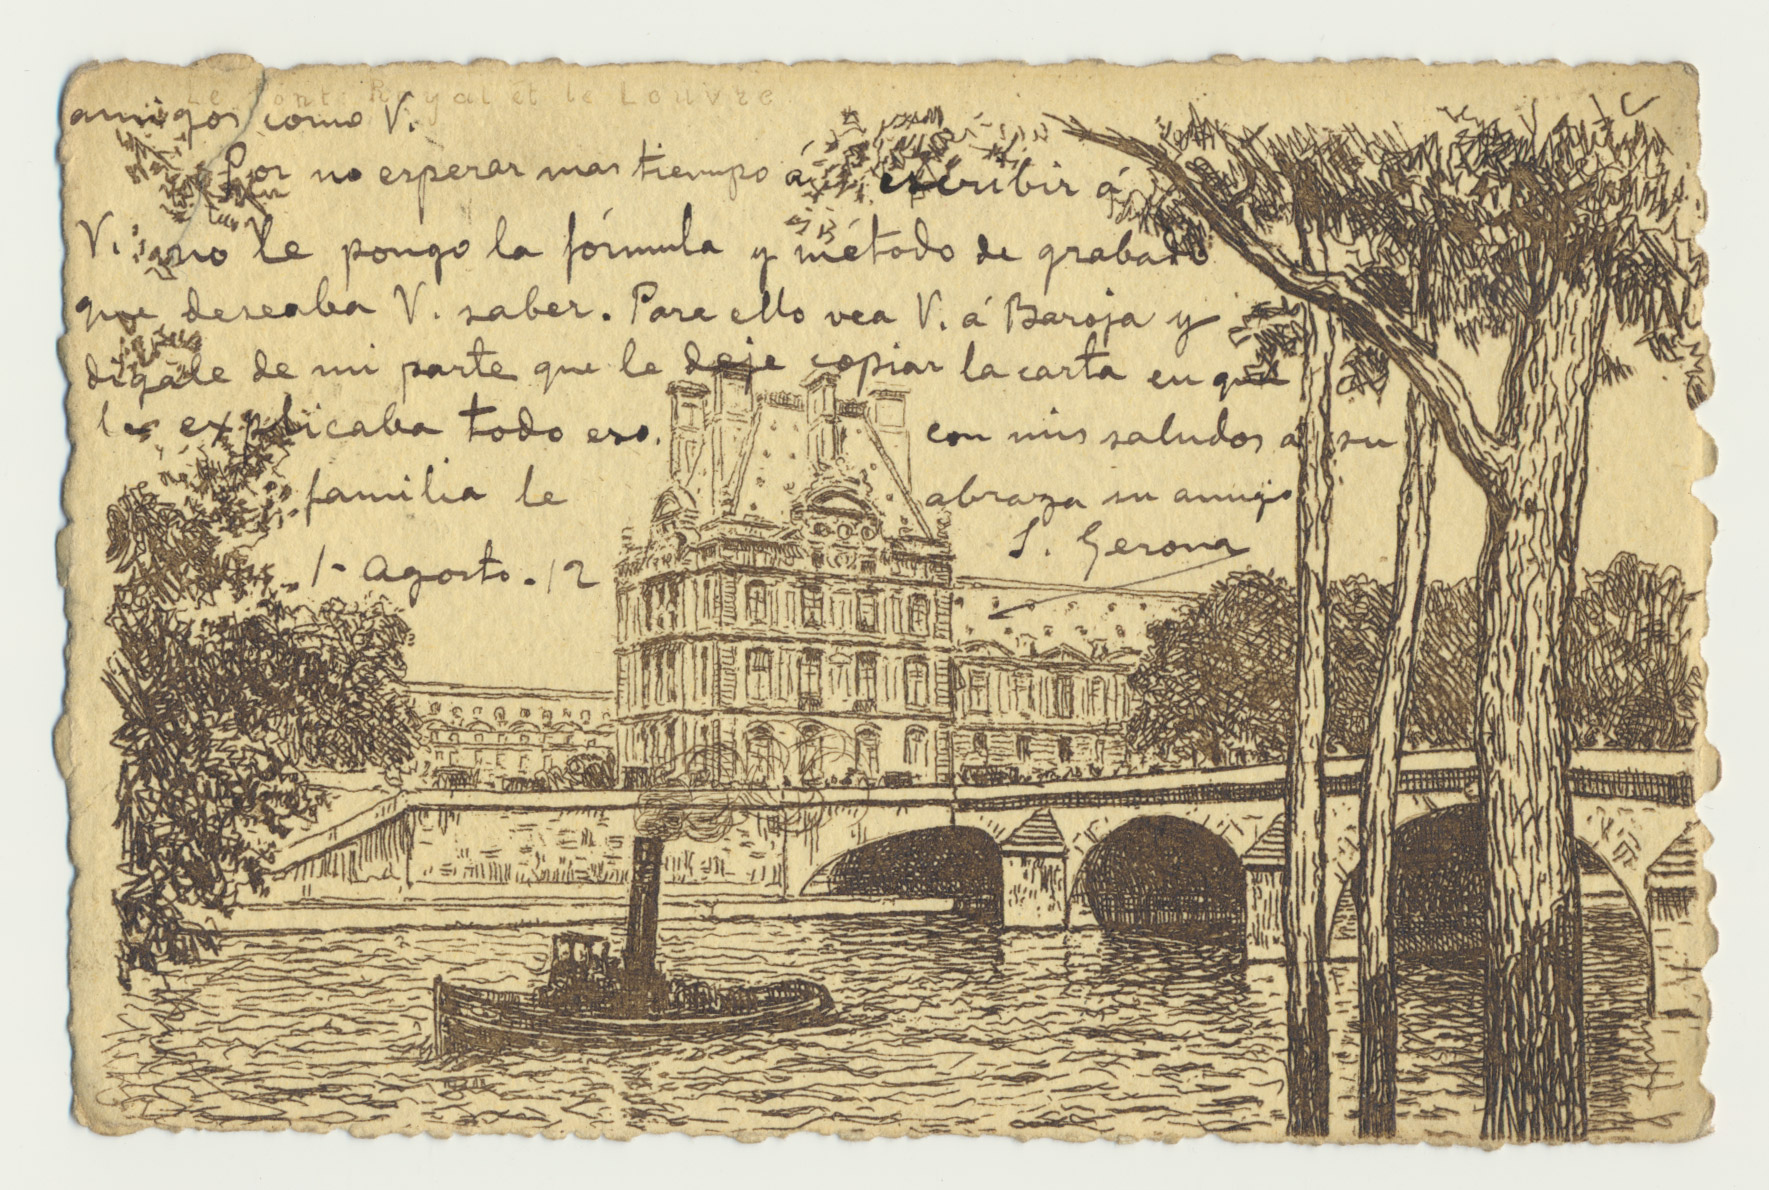 Le Pont Royal et le Louvre
amigos como V.
Por no esperar mas tiempo á escribir á
V. no le pongo la fórmula y método de grabado
que deseaba V. saber. Para ello vea V. á Baroja y
digale de mi parte que le deje copiar la carta en que
le explicaba todo eso. con mis saludos a su
familia le abraza su amigo
J. Gerona
1- Agosto - 12